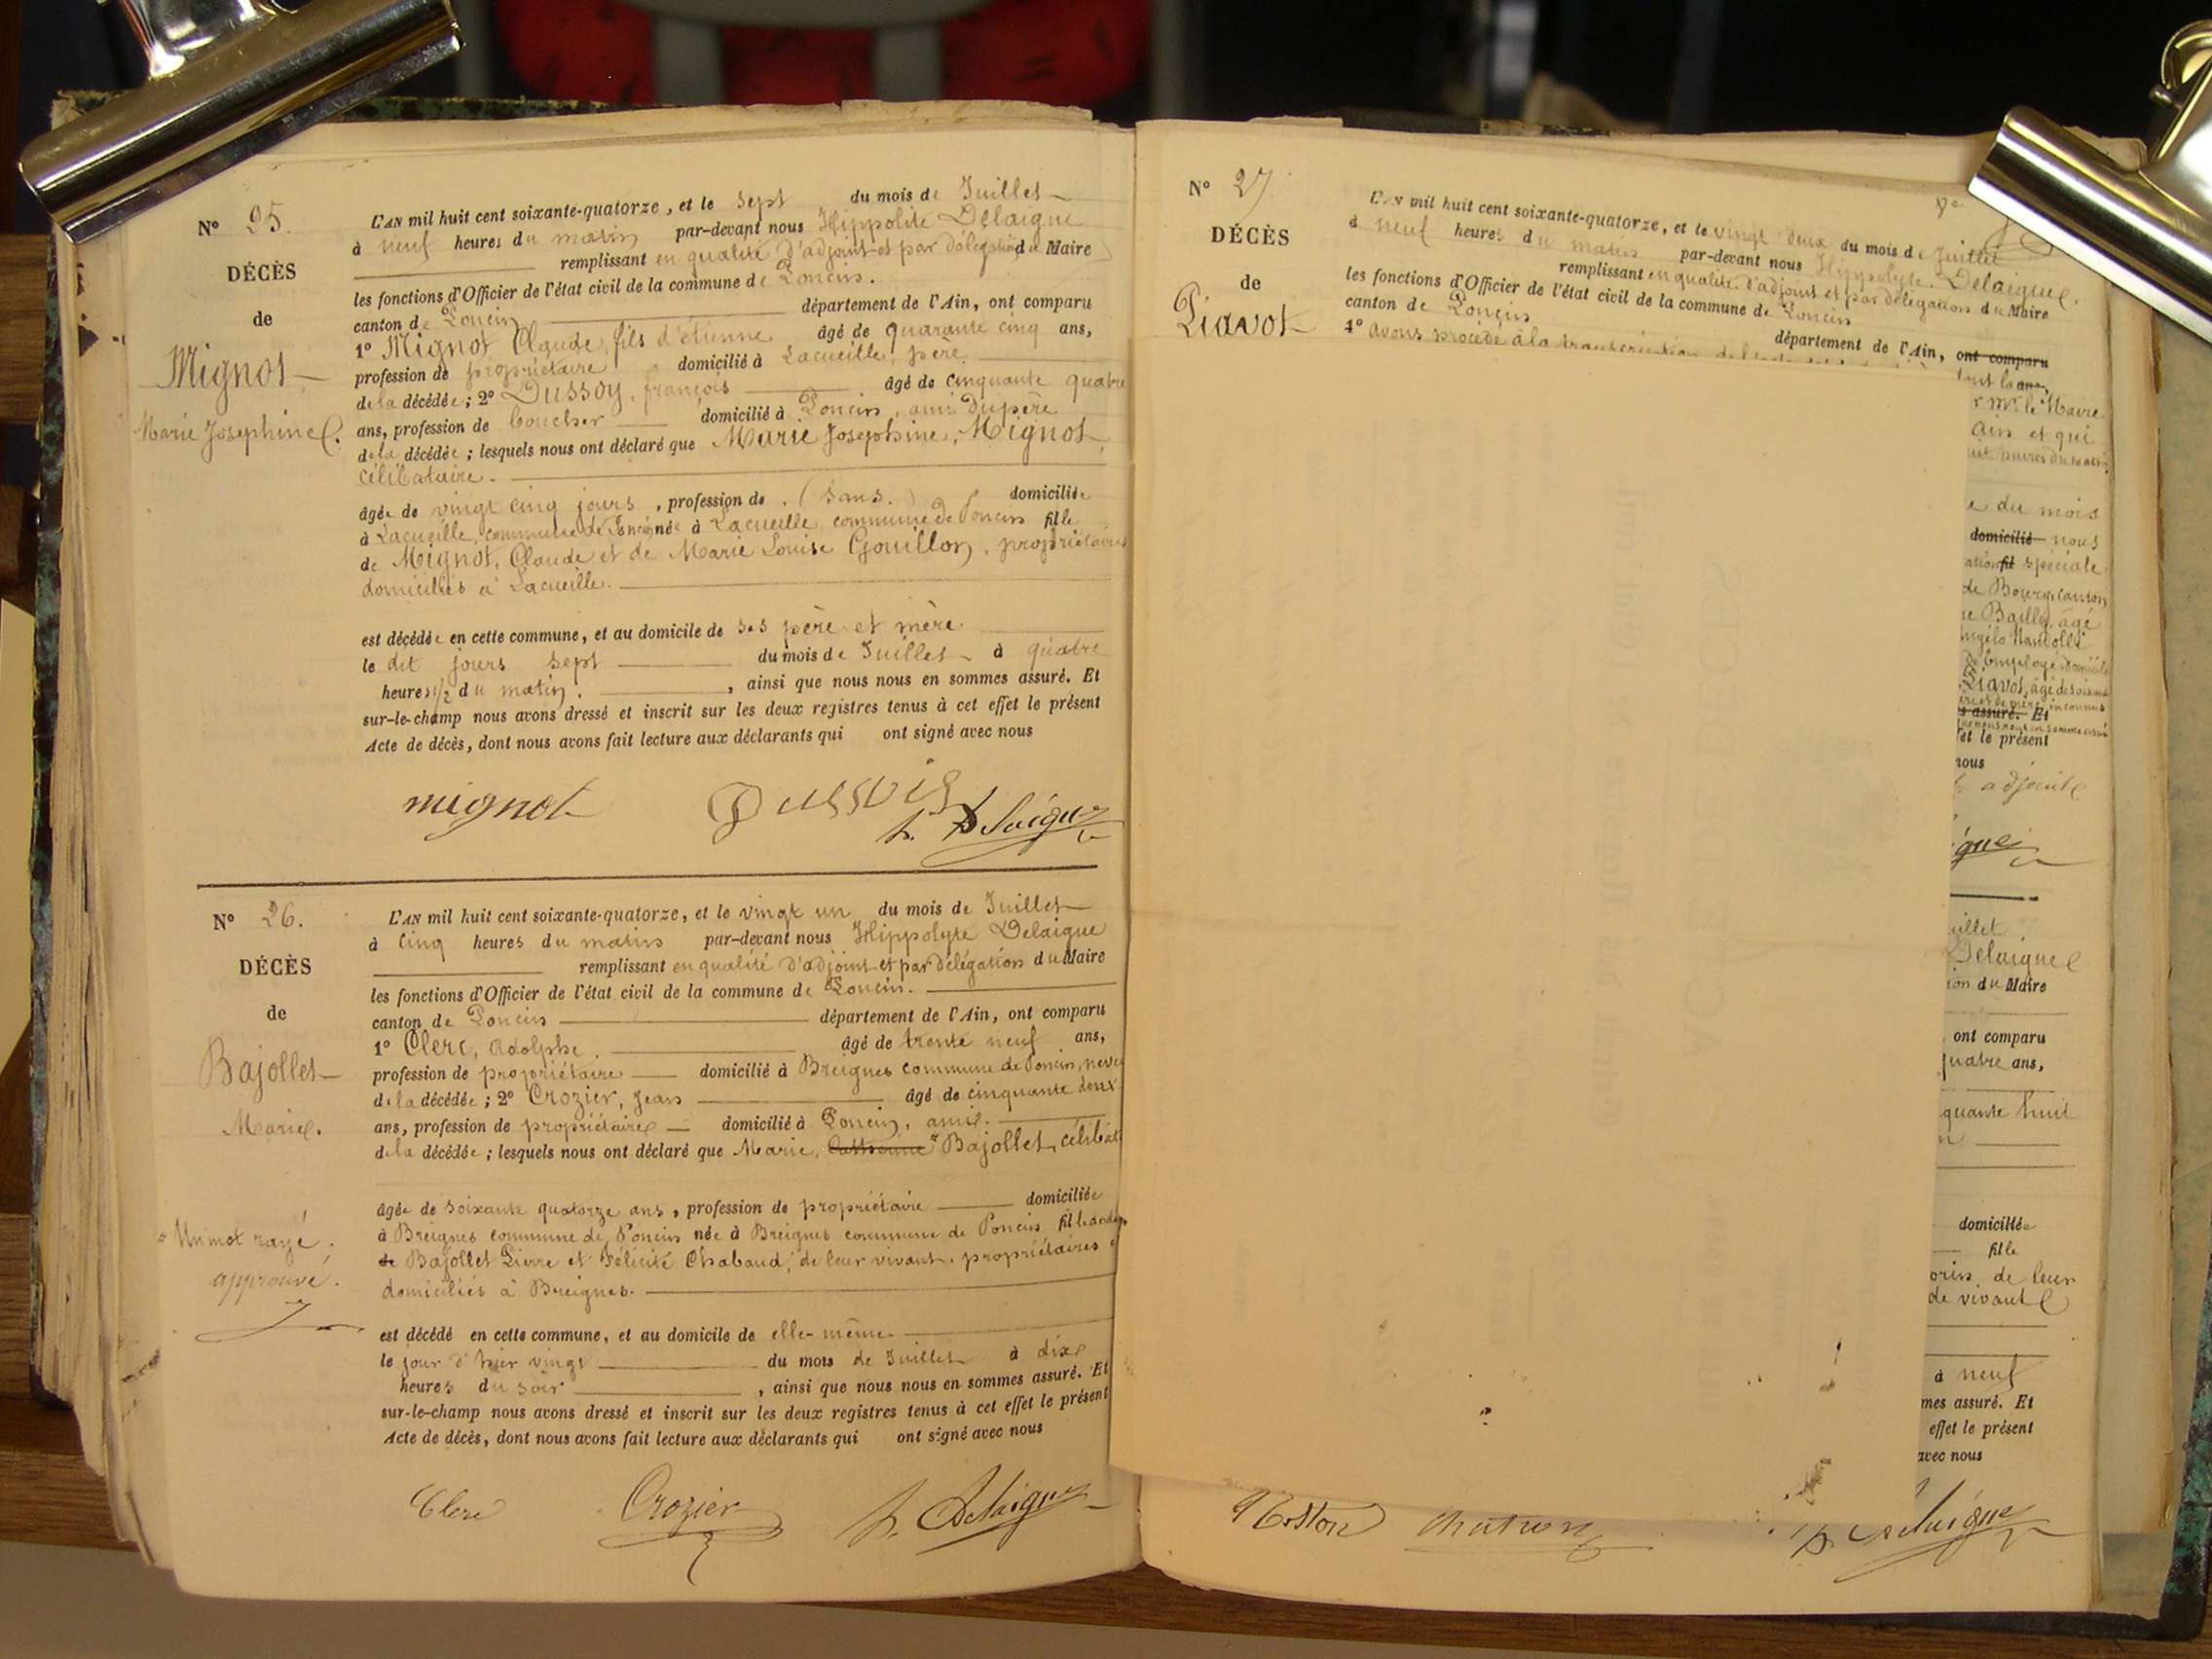 N° 25.
DÉCÈS
de
Mignot
Marie Josephine.
L'AN mil huit cent soixante-quatorze, et le sept du mois de Juillet
à neuf heures du matin par-devant nous Hippolite Delaigue
remplissant en qualité d'adjoint et par délégation du Maire
les fonctions d'Officier de l'état civil de la commune de Poncin.
canton de Poncin département de l'Ain, ont comparu
1° Mignot Claude, fils d'étienne âgé de quarante cinq ans,
profession de propriétaire domicilié à Lacueille, père
de la décédée ; 2° Dussoy, françois âgé de cinquante quatre
ans, profession de boucher domicilié à Poncin, ami du père
de la décédée ; lesquels nous ont déclaré que Marie Josephine, Mignot
célibataire.
âgée de vingt cinq jours, profession de (sans.) domiciliée
à Lacueille, commune de Poncin née à Lacueille, commune de Poncin fille
de Mignot, Claude et de Marie Louise Gouillon, propriétaires
domiciliés à Lacueille.
est décédée en cette commune, et au domicile de ses père et mère.
le dit jours sept du mois de Juillet à quatre
heures 1/2 du matin. , ainsi que nous nous en sommes assuré. Et
sur-le-champ nous avons dressé et inscrit sur les deux registres tenus à cet effet le présent
Acte de décès, dont nous avons fait lecture aux déclarants qui ont signé avec nous
mignot Dussois h. Delaigue
N° 26.
DÉCÈS
de
Bajollet
Marie.
Un mot rayé.
approuvé.
L'AN mil huit cent soixante-quatorze, et le vingt un du mois de Juillet
à cinq heures du matin par-devant nous Hippolyte Delaigue
remplissant en qualité d'adjoint et par délégation du Maire
les fonctions d'Officier de l'état civil de la commune de Poncin.
canton de Poncin département de l'Ain, ont comparu
1° Clerc, Adolphe. âgé de trente neuf ans,
profession de propriétaire domicilié à Breignes commune de Poncin, neveu
de la décédée ; 2° Crozier, Jean âgé de cinquante deux
ans, profession de propriétaire domicilié à Poncin, ami.
de la décédée ; lesquels nous ont déclaré que Marie, Bajollet, célibat
âgée de soixante quatorze ans, profession de propriétaire domiciliée
à Breignes commune de Poncin née à Breignes commune de Poncin fille
de Bajollet Pierre et Félicité Chabaud, de leur vivant, propriétaires
domiciliés à Breignes.
est décédé en cette commune, et au domicile de elle-même
le jour d'hier vingt du mois de Juillet à dix
heures du soir , ainsi que nous nous en sommes assuré. Et
sur-le-champ nous avons dressé et inscrit sur les deux registres tenus à cet effet le présent
Acte de décès, dont nous avons fait lecture aux déclarants qui ont signé avec nous
Clerc Crozier h. Delaigue
N° 27
DÉCÈS
de
Piavot
L'AN mil huit cent soixante-quatorze, et le vingt deux du mois de Juillet
à neuf heures du matin par-devant nous Hippolyte Delaigue.
remplissant en qualité d'adjoint et par délégation du Maire
les fonctions d'Officier de l'état civil de la commune de Poncin
canton de Poncin département de l'Ain, ont comparu
1° avons procédé à la transcription de l'acte
r Mr le Maire
Ain et qui
e du mois
domicilié nous
ation fil spéciale
de Bourg canton
re Bailly, agé
Piavot, âgé de soixante
inconnus
s assuré. Et
et le présent
nous
adjoint
gue
uillet
Delaigue
ion du Maire
ont comparu
quatre ans,
quante huit
n
domiciliée
fille
orin de leur
de vivant
à neuf
mes assuré. Et
effet le présent
avec nous
chatron h. Delaigue